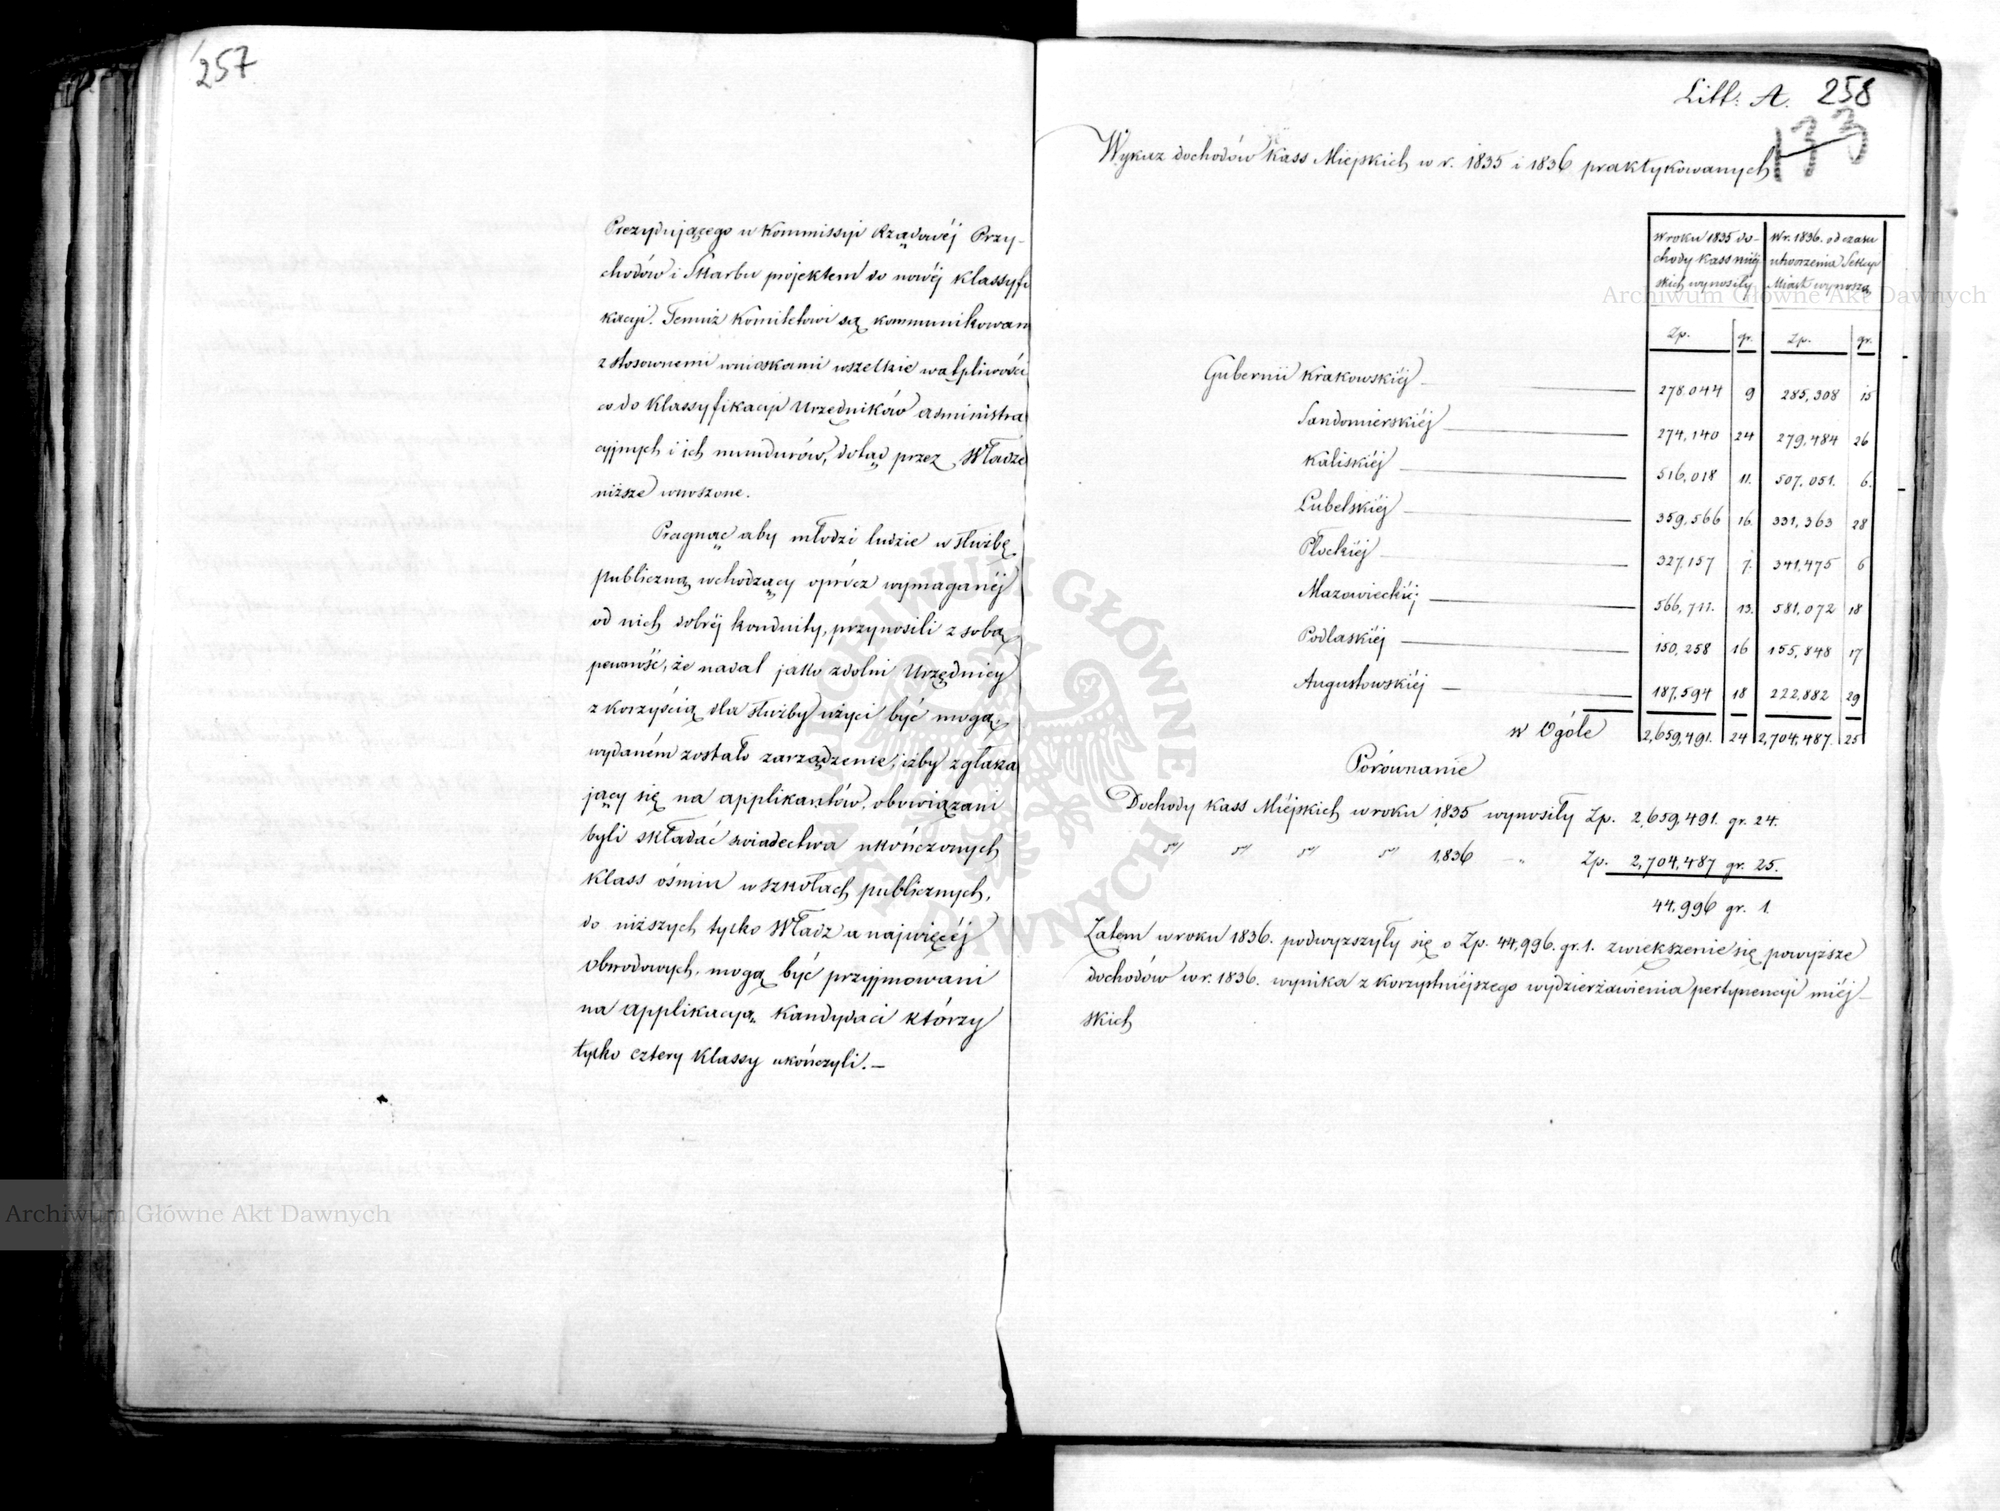 257
Prezydującego w Kommissyi Rządowéj Przy-
chodów i Skarbu projektem do nowéj klassyfi
kacyi. Temuż Komitetowi są kommunikowan
z stosownemi wnioskami wszelkie wątpliwości
co do klassyfikacyi Urzędników administra
cyjnych i ich mundurów, dotąd przez Władze
niższe wnoszone.
Pragnąc aby młodzi ludzie w służbę
publiczną wchodzący oprócz wymaganéj
od nich dobréj konduity, przynosili z sobą
pewność, że nadal jako zdolni Urzędnicy
z korzyścią dla służby użyci być mogą;
wydaném zostało zarządzenie, iżby zgłasza
jący się na applikantów, obowiązani
byli składać świadectwa ukończonych
klass óśmiu w szkołach publicznych,
do niższych tylko Władz a najwięcéj
Obwodowych, mogą być przyjmowani
na applikacyą, Kandydaci którzy
tylko cztery klassy ukończyli.—
Litt: A. 258
133
Wykaz dochodów Kass Miejskich w r. 1835 i 1836 praktykowanych
W roku 1835 do- W r. 1836. od czasu
chody kass miéj utworzenia Sekcyi
skich wynosiły Miast wynoszą
Zp. gr. Zp. gr.
Gubernii Krakowskiéj 278.044 9 285,308 15
Sandomierskiéj 274,140 24 279,484 26
Kaliskiéj 516,018 11. 507,051. 6.
Lubelskiéj 359,566 16. 331,363 28
Płockiéj 327,157 7. 341,475 6
Mazowieckiéj 566,711. 13. 581,072 18
Podlaskiéj 150,258 16 155,848 17
Augustowskiéj 187,594 18 222,882 29
w Ogóle 2,659,491. 24 2,704,487. 25
Porównanie
Dochody kass Miéjskich w roku 1835 wynosiły Zp. 2,659,491. gr. 24.
" " " " 1836 — " Zp. 2,704,487 gr. 25.
44,996 gr. 1.
Zatem w roku 1836. podwyższyły się o Zp. 44,996. gr. 1. zwiększenie się powyższe
dochodów w r. 1836. wynika z korzystniéjszego wydzierżawienia pertynencyi miéj-
skich
Archiwum Główne Akt Dawnych
Archiwum Główne Akt Dawnych
ARCHIWUM GŁÓWNE AKT DAWNYCH